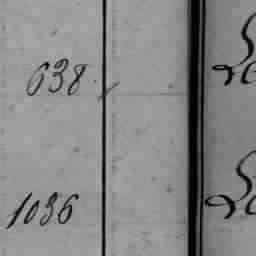 638
1036